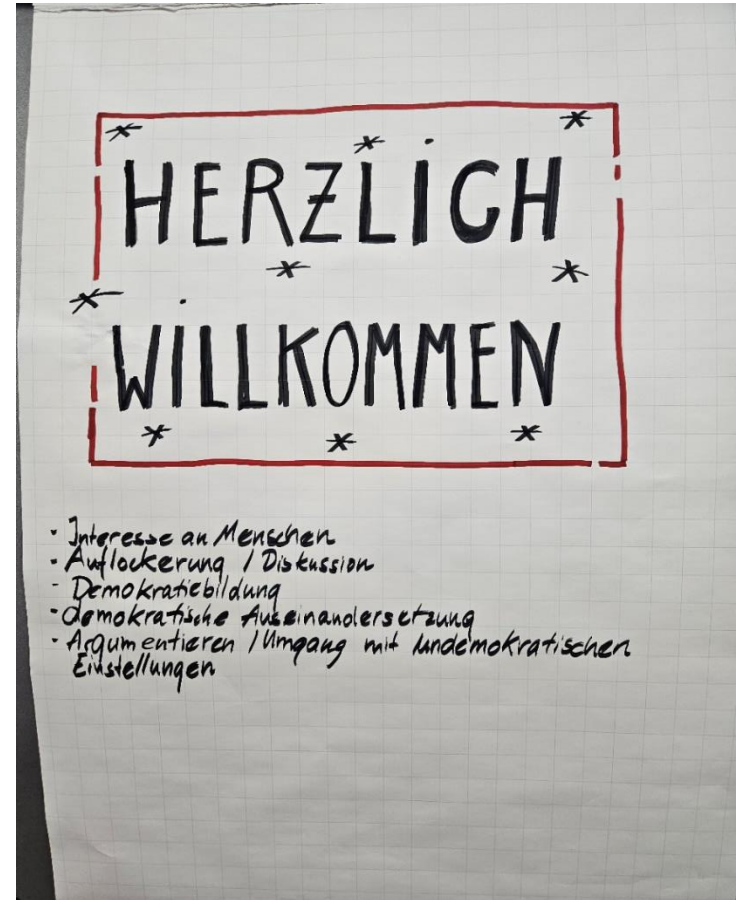 HERZLiCH
WiLLKOMMEN
- Interesse an Menschen
- Auflockerung / Diskussion
- Demokratiebildung
- demokratische Auseinandersetzung
- Argumentieren / Umgang mit undemokratischen
Einstellungen